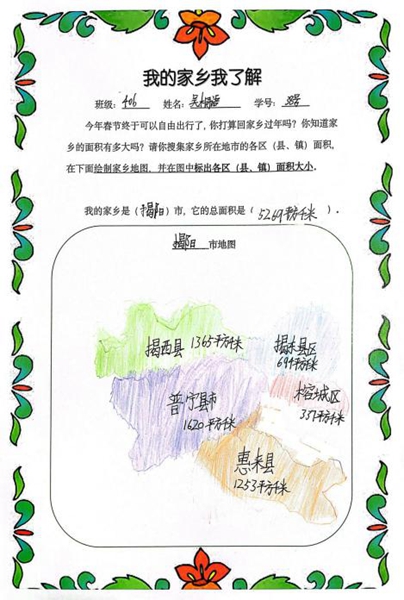 我的家乡我了解
班级：406 姓名：吴 学号：
今年春节终于可以自由出行了，你打算回家乡过年吗？你知道家
乡的面积有多大吗？请你搜集家乡所在地市的各区（县、镇）面积，
在下面绘制家乡地图，并在图中标出各区（县、镇）面积大小。
我的家乡是（揭阳）市，它的总面积是（5269平方千米）。
揭阳 市地图
揭西县 1365平方千米
揭东县区
694平方千米
榕城区
337平方千米
普宁县市
1620平方千米
惠来县
1253平方千米